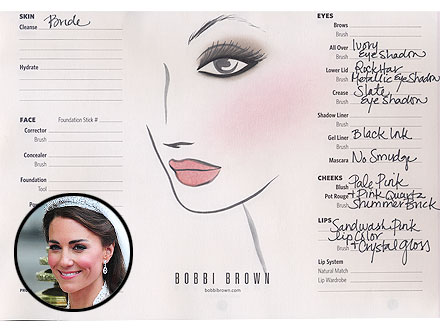 SKIN
Cleanse Bride
Hydrate
FACE Foundation Stick #
Corrector
Brush
Concealer
Brush
Foundation
Tool
EYES
Brows
Brush
All Over Ivory
Brush Eye Shadow
Lower Lid Rockstar
Brush Metallic Eye Shadow
Crease Slate
Brush eye Shadow
Shadow Liner
Brush
Gel Liner Black Ink
Brush
Mascara No Smudge
CHEEKS
Blush Pale Pink
Brush
Pot Rouge + Pink Quartz
Brush Shimmerbrick
LIPS
Sandwash Pink
lip Color
+ Crystal gloss
Lip System
Natural Match
Lip Wardrobe
BOBBI BROWN
bobbibrown.com